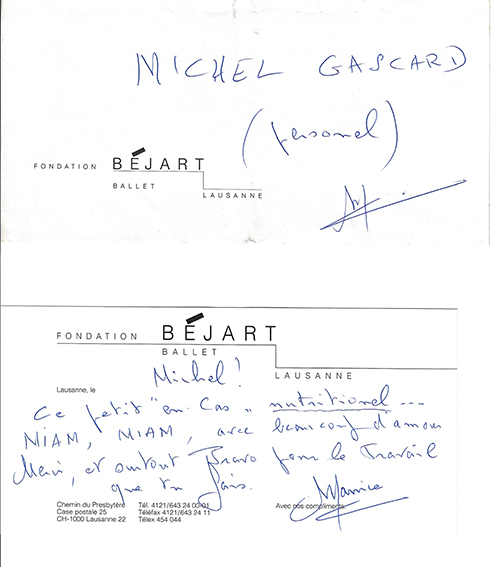 MICHEL GASCARD
(personel)
FONDATION BÉJART
BALLET
LAUSANNE
M.
FONDATION BÉJART
BALLET
LAUSANNE
Michel!
Lausanne, le
Ce petit "en-cas" nutritionel ...
MIAM, MIAM, avec beaucoup d'amour
Merci, et surtout Bravo pour le Travail
que tu fais.
Maurice
Chemin du Presbytère Tél. 4121/643 24 00-01
Case postale 25 Téléfax 4121/643 24 11
CH-1000 Lausanne 22 Télex 454 044
Avec nos compliments